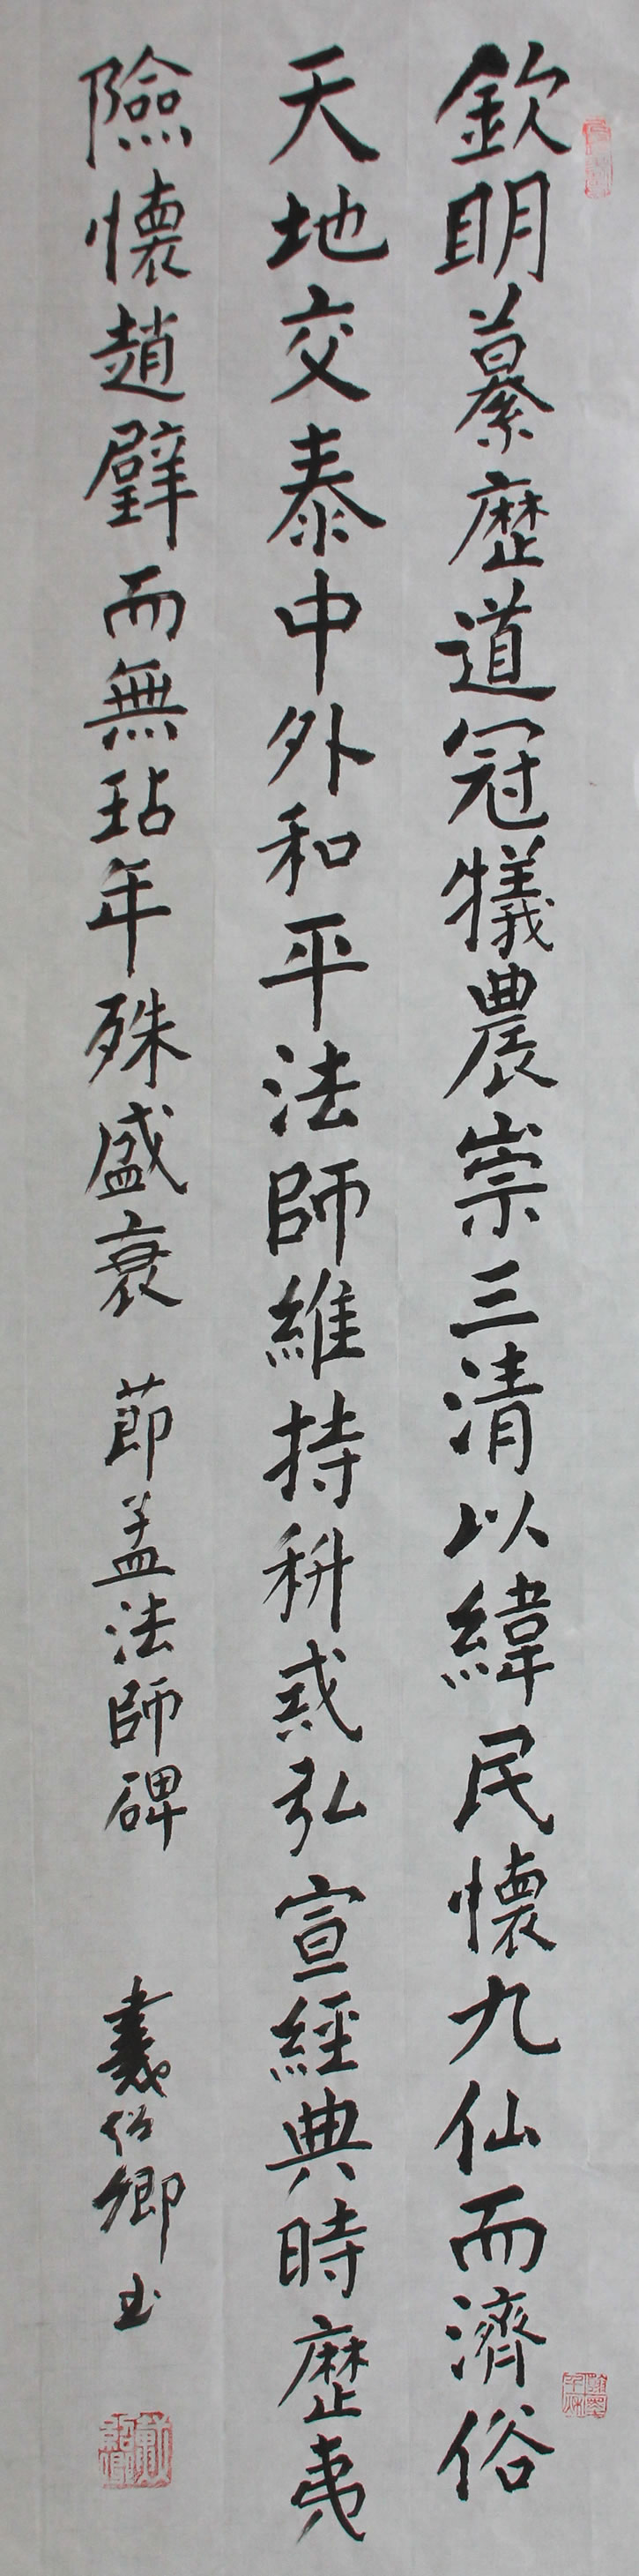 欽明纂歷道冠犧農崇三清以緯民懷九仙而濟俗
天地交泰中外和平法師維持科戒弘宣經典時歷夷
險懷趙璧而無玷年殊盛衰
節孟法師碑
卿書